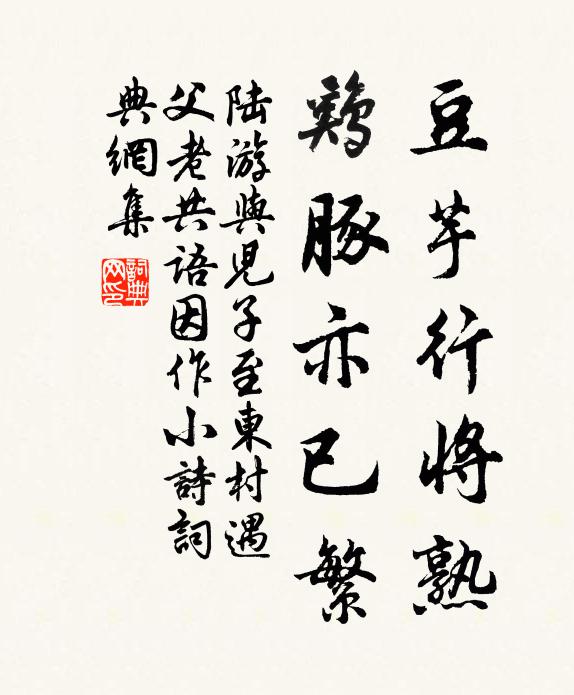 豆芋行將熟
鷄豚亦已繁
陆游與兒子至東村遇
父老共語因作小詩詞
典網集
詞典
网印